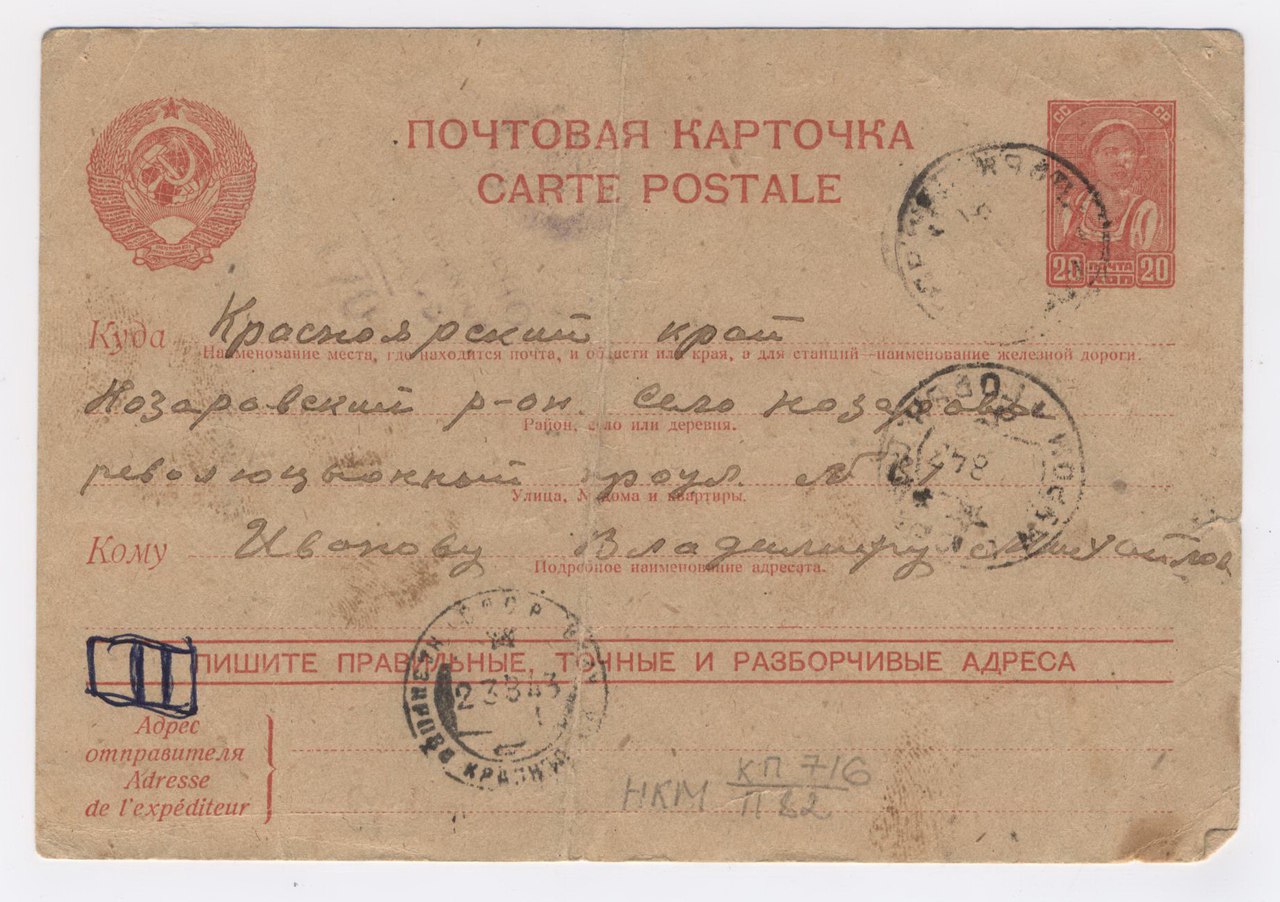 ПОЧТОВАЯ КАРТОЧКА
CARTE POSTALE
СС СР
20 ПОЧТА 20
Куда Красноярский край
Наименование места, где находится почта, и области или края, а для станций — наименование железной дороги.
Назаровский р-он. село назарово
Район, село или деревня.
революцыонный №
Улица, № дома и квартиры.
Кому Иванову Владимиру
Подробное наименование адресата.
ПИШИТЕ ПРАВИЛЬНЫЕ, ТОЧНЫЕ И РАЗБОРЧИВЫЕ АДРЕСА
23 8 43
Адрес
отправителя
Adresse
de l'expéditeur
НКМ КП 716
П 82